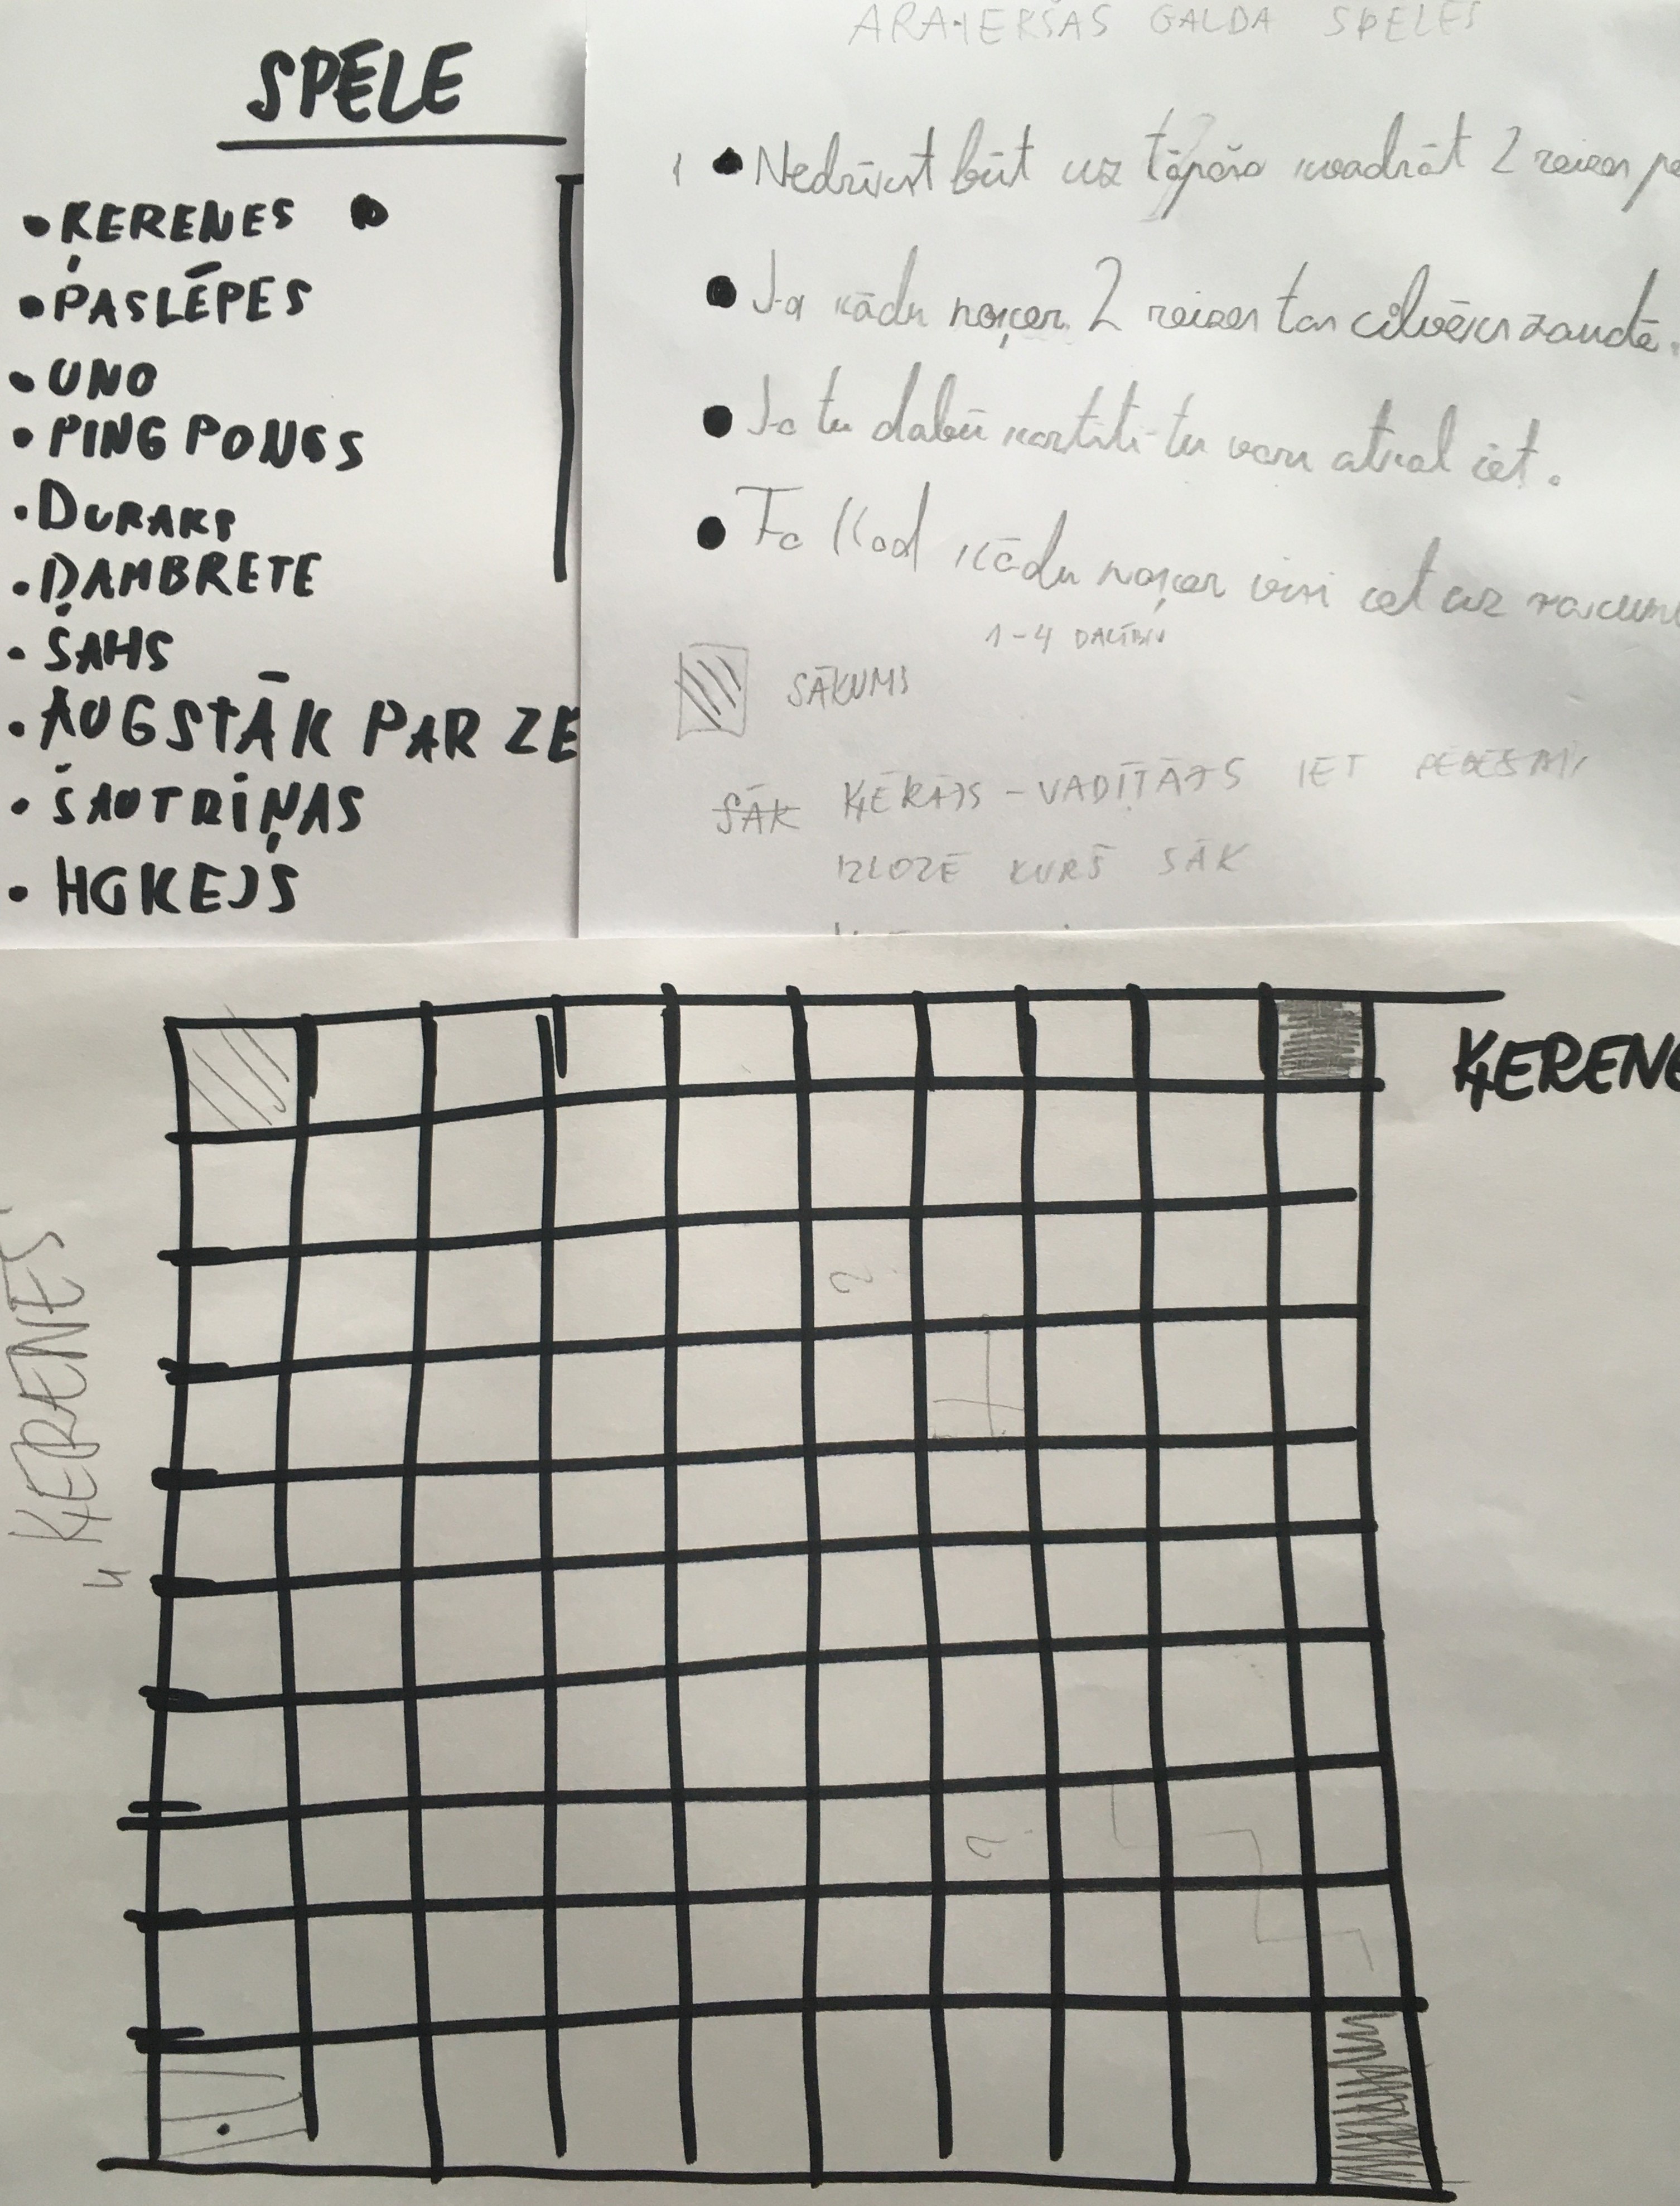 SPĒLE
• ĶERENES •
• PASLĒPES
• UNO
• PING PONGS
• DURAKS
• DAMBRETE
• ŠAHS
• AUGSTĀK PAR ZE
• ŠAUTRIŅAS
• HOKEJS
GALDA SPĒLES
• Nedrīkst būt uz tāpāša kvadrāt 2 reizes
• Ja kādu noķer 2 reizes tas cilvēks zaudē.
• Ja tu dabū kartīti tu vari atkal iet.
• Kad kādu noķer visi iet uz
1-4
SĀKUMS
SĀK ĶĒRĀJS - VADĪTĀJS IET
IZLOZĒ KURŠ SĀK
ĶERENE
"ĶERENES"